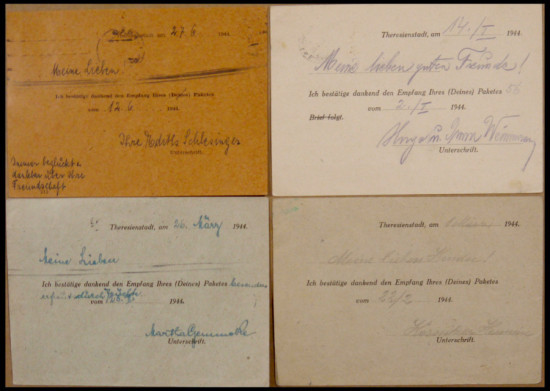 27. 6. 1944.
Meine Lieben
Ich bestätige dankend den Empfang Ihres (Deines) Paketes
vom 12. 6 1944.
Ihre Edith Schlesinger
Unterschrift.
Immer beglückt u.
dankbar über Ihre
Freundschaft
Theresienstadt, am 14./I 1944.
Meine lieben guten Freunde!
Ich bestätige dankend den Empfang Ihres (Deines) Paketes
vom 2./I 1944.
Brief folgt.
Unterschrift.
Theresienstadt, am 26. März 1944.
Meine Lieben
Ich bestätige dankend den Empfang Ihres (Deines) Paketes
vom 1944.
Unterschrift.
Theresienstadt, am 1944.
Meine lieben
Ich bestätige dankend den Empfang Ihres (Deines) Paketes
vom 22/2 1944.
Unterschrift.